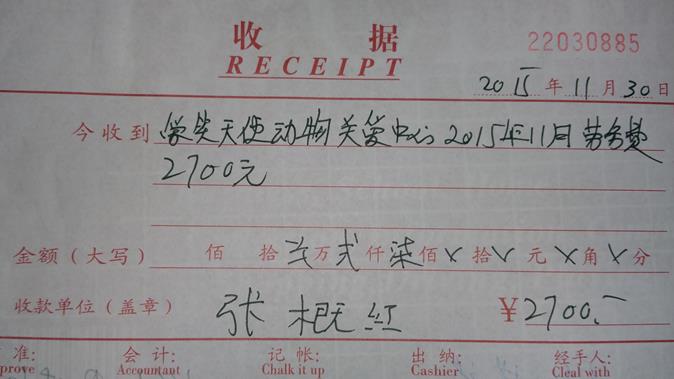 收 据 22030885
RECEIPT
2015 年 11 月 30 日
今收到 微笑天使动物关爱中心2015年11月劳务费
2700元
金额（大写） 佰 拾 万 贰 仟 柒 佰 X 拾 X 元 X 角 X 分
收款单位（盖章） 张根红 ¥2700.-
准: 会 计: 记 帐: 出 纳: 经手人:
prove Accountant Chalk it up Cashier Cleal with